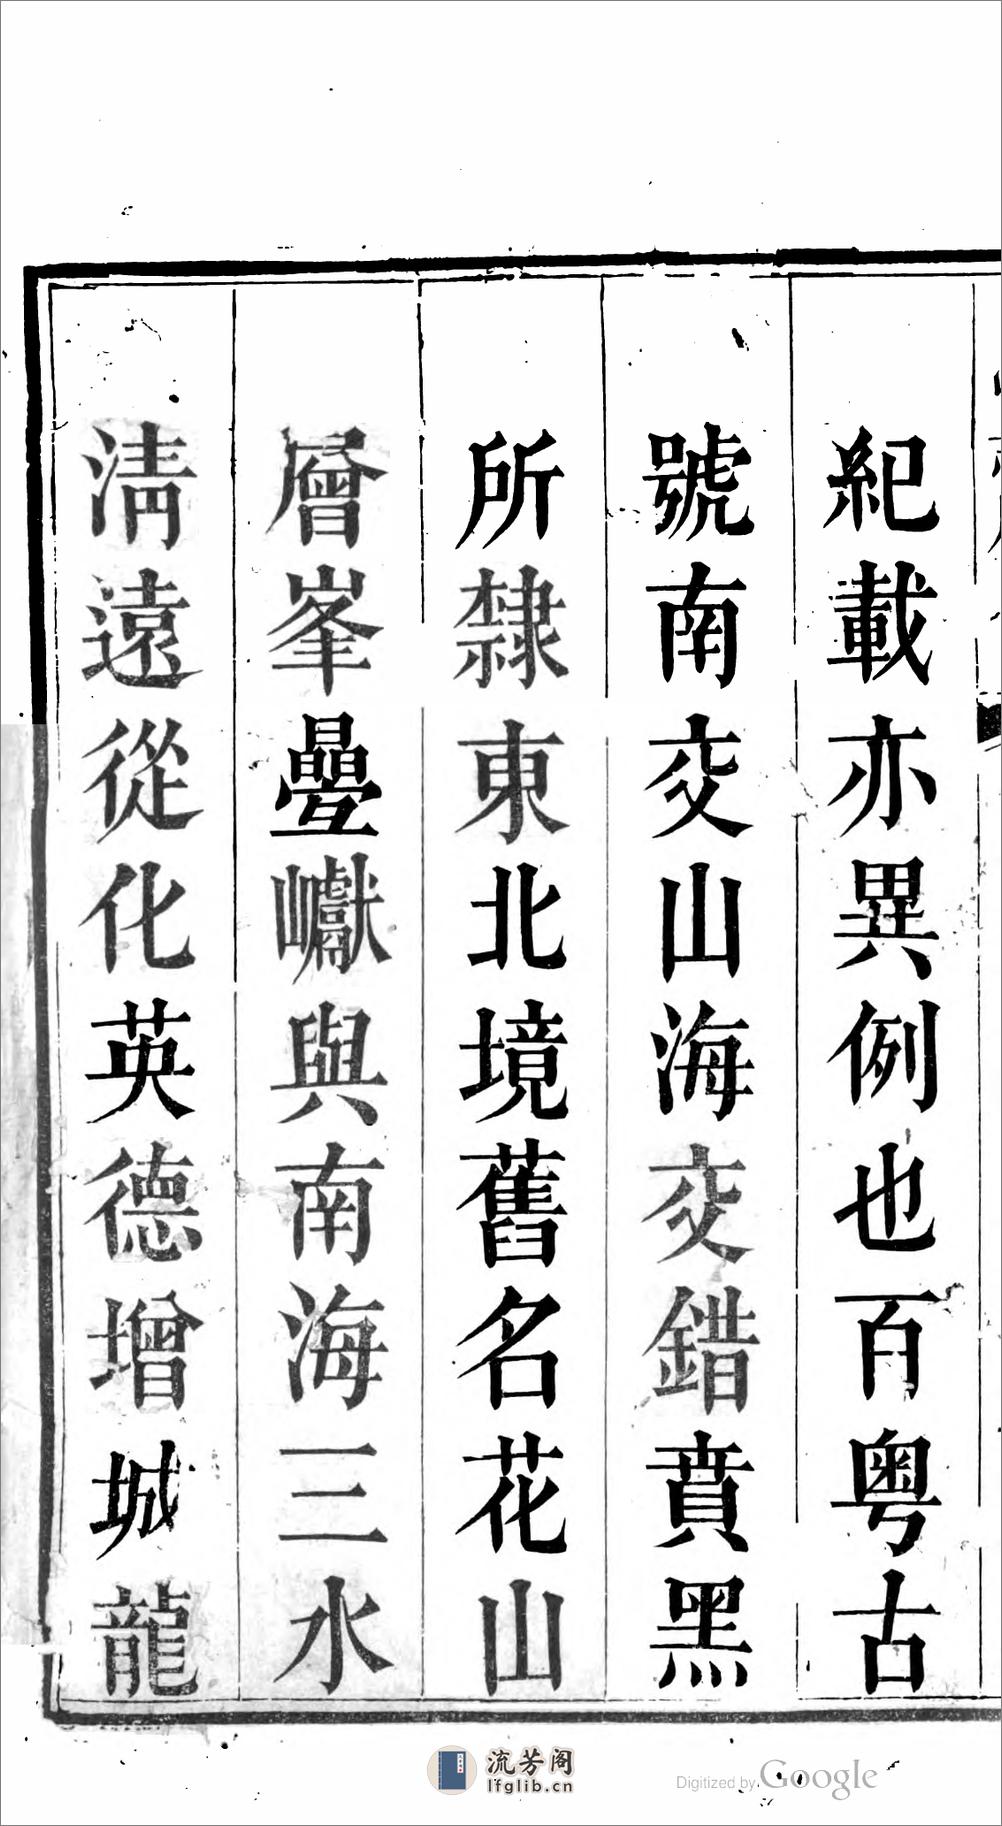 紀載亦異例也百粵古
號南交山海交錯賁黑
所隸東北境舊名花山
層峯疊巘與南海三水
清遠從化英德增城龍
流芳阁
lfglib.cn
Digitized by Google